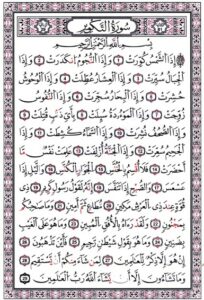 سُورَةُ التَّكْوِيرِ
بِسْمِ اللَّهِ الرَّحْمَنِ الرَّحِيمِ
إِذَا الشَّمْسُ كُوِّرَتْ وَإِذَا النُّجُومُ انكَدَرَتْ وَإِذَا
الْجِبَالُ سُيِّرَتْ وَإِذَا الْعِشَارُ عُطِّلَتْ وَإِذَا الْوُحُوشُ
حُشِرَتْ وَإِذَا الْبِحَارُ سُجِّرَتْ وَإِذَا النُّفُوسُ
زُوِّجَتْ وَإِذَا الْمَوْءُودَةُ سُئِلَتْ بِأَيِّ ذَنبٍ قُتِلَتْ
وَإِذَا الصُّحُفُ نُشِرَتْ وَإِذَا السَّمَاءُ كُشِطَتْ وَإِذَا
الْجَحِيمُ سُعِّرَتْ وَإِذَا الْجَنَّةُ أُزْلِفَتْ عَلِمَتْ نَفْسٌ مَّا
أَحْضَرَتْ فَلَا أُقْسِمُ بِالْخُنَّسِ الْجَوَارِ الْكُنَّسِ وَاللَّيْلِ إِذَا
عَسْعَسَ وَالصُّبْحِ إِذَا تَنَفَّسَ إِنَّهُ لَقَوْلُ رَسُولٍ كَرِيمٍ ذِي
قُوَّةٍ عِندَ ذِي الْعَرْشِ مَكِينٍ مُّطَاعٍ ثَمَّ أَمِينٍ وَمَا صَاحِبُكُم
بِمَجْنُونٍ وَلَقَدْ رَءَاهُ بِالْأُفُقِ الْمُبِينِ وَمَا هُوَ عَلَى الْغَيْبِ
بِضَنِينٍ وَمَا هُوَ بِقَوْلِ شَيْطَانٍ رَّجِيمٍ فَأَيْنَ تَذْهَبُونَ
إِنْ هُوَ إِلَّا ذِكْرٌ لِّلْعَالَمِينَ لِمَن شَاءَ مِنكُمْ أَن يَسْتَقِيمَ
وَمَا تَشَاءُونَ إِلَّا أَن يَشَاءَ اللَّهُ رَبُّ الْعَالَمِينَ